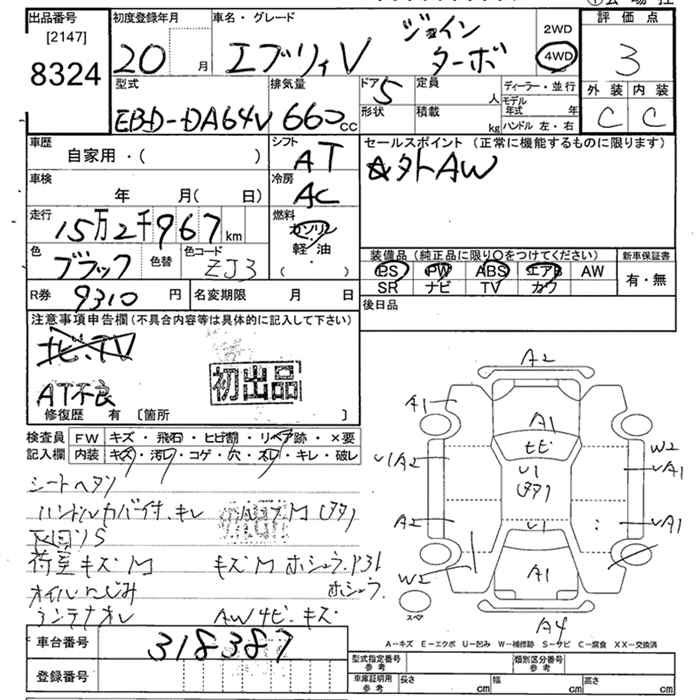 出品番号 初度登録年月 車名・グレード 評価点
[2147] ジョイン 2WD
8324 20 月 エブリィV ターボ 4WD 3
型式 排気量 ドア 5 定員 人 ディーラー・並行 外装 内装
EBD-DA64V 660cc 形状 積載 kg モデル年式 年 C C
ハンドル 左・右
車歴 シフト セールスポイント (正常に機能するものに限ります)
自家用・( ) AT ☆外AW
車検 冷房
年 月( 日) AC
走行 燃料
15万2千967km ガソリン
軽・油
色 色替 色コード ( ・ ) 装備品 (純正品に限り○をつけてください) 新車保証書
ブラック ZJ3 PS PW ABS エアB AW 有・無
SR ナビ TV カワ
R券 9310円 名変期限 月 日 後日品
注意事項申告欄(不具合内容等は具体的に記入して下さい)
ナビ、TV
AT不良 初出品
修復歴 有 〔箇所 〕
検査員 FW キズ・飛石・ヒビ割・リペア跡・×要
記入欄 内装 キズ・汚レ・コゲ・穴・スレ・キレ・破レ
シートヘタリ
ハンドルカバー付、キレ
荷室キズM キズM ホシュウ
オイルにじみ ホシュウ
アンテナオレ AW4ビ、キズ
車台番号 318387
登録番号
A2
A1 A1
ヒビ W2
U1A2 U1 UA1
A2 U1 UA1
W2 A1
スペア
A4
A-キズ E-エクボ U-凹み W-補修跡 S-サビ C-腐食 XX-交換済
型式指定番号 参考 類別区分番号 参考
車庫証明用 参考 長さ cm 幅 cm 高さ cm